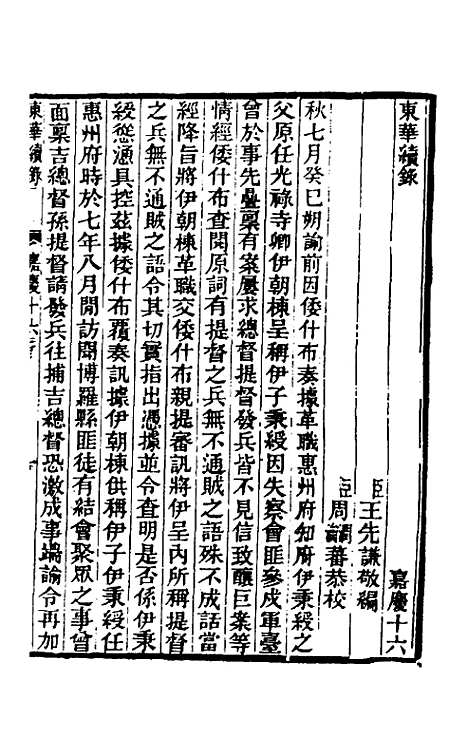 東華續錄
嘉慶十六
臣王先謙敬編
臣周潤蕃恭校
秋七月癸巳朔諭前因倭什布奏據革職惠州府知府伊秉綬之
父原任光祿寺卿伊朝棟呈稱伊子秉綬因失察會匪參戍軍臺
曾於事先疊稟有案屢求總督提督發兵皆不見信致釀巨案等
情經倭什布查閱原詞有提督之兵無不通賊之語殊不成話當
經降旨將伊朝棟革職交倭什布親提審訊將伊呈內所稱提督
之兵無不通賊之語令其切實指出憑據並令查明是否係伊秉
綬慫恿具控茲據倭什布覆奏訊據伊朝棟供稱伊子伊秉綬任
惠州府時於七年八月閒訪聞博羅縣匪徒有結會聚眾之事曾
面稟吉總督孫提督請發兵往捕吉總督恐激成事端諭令再加
東華續錄 嘉慶十六